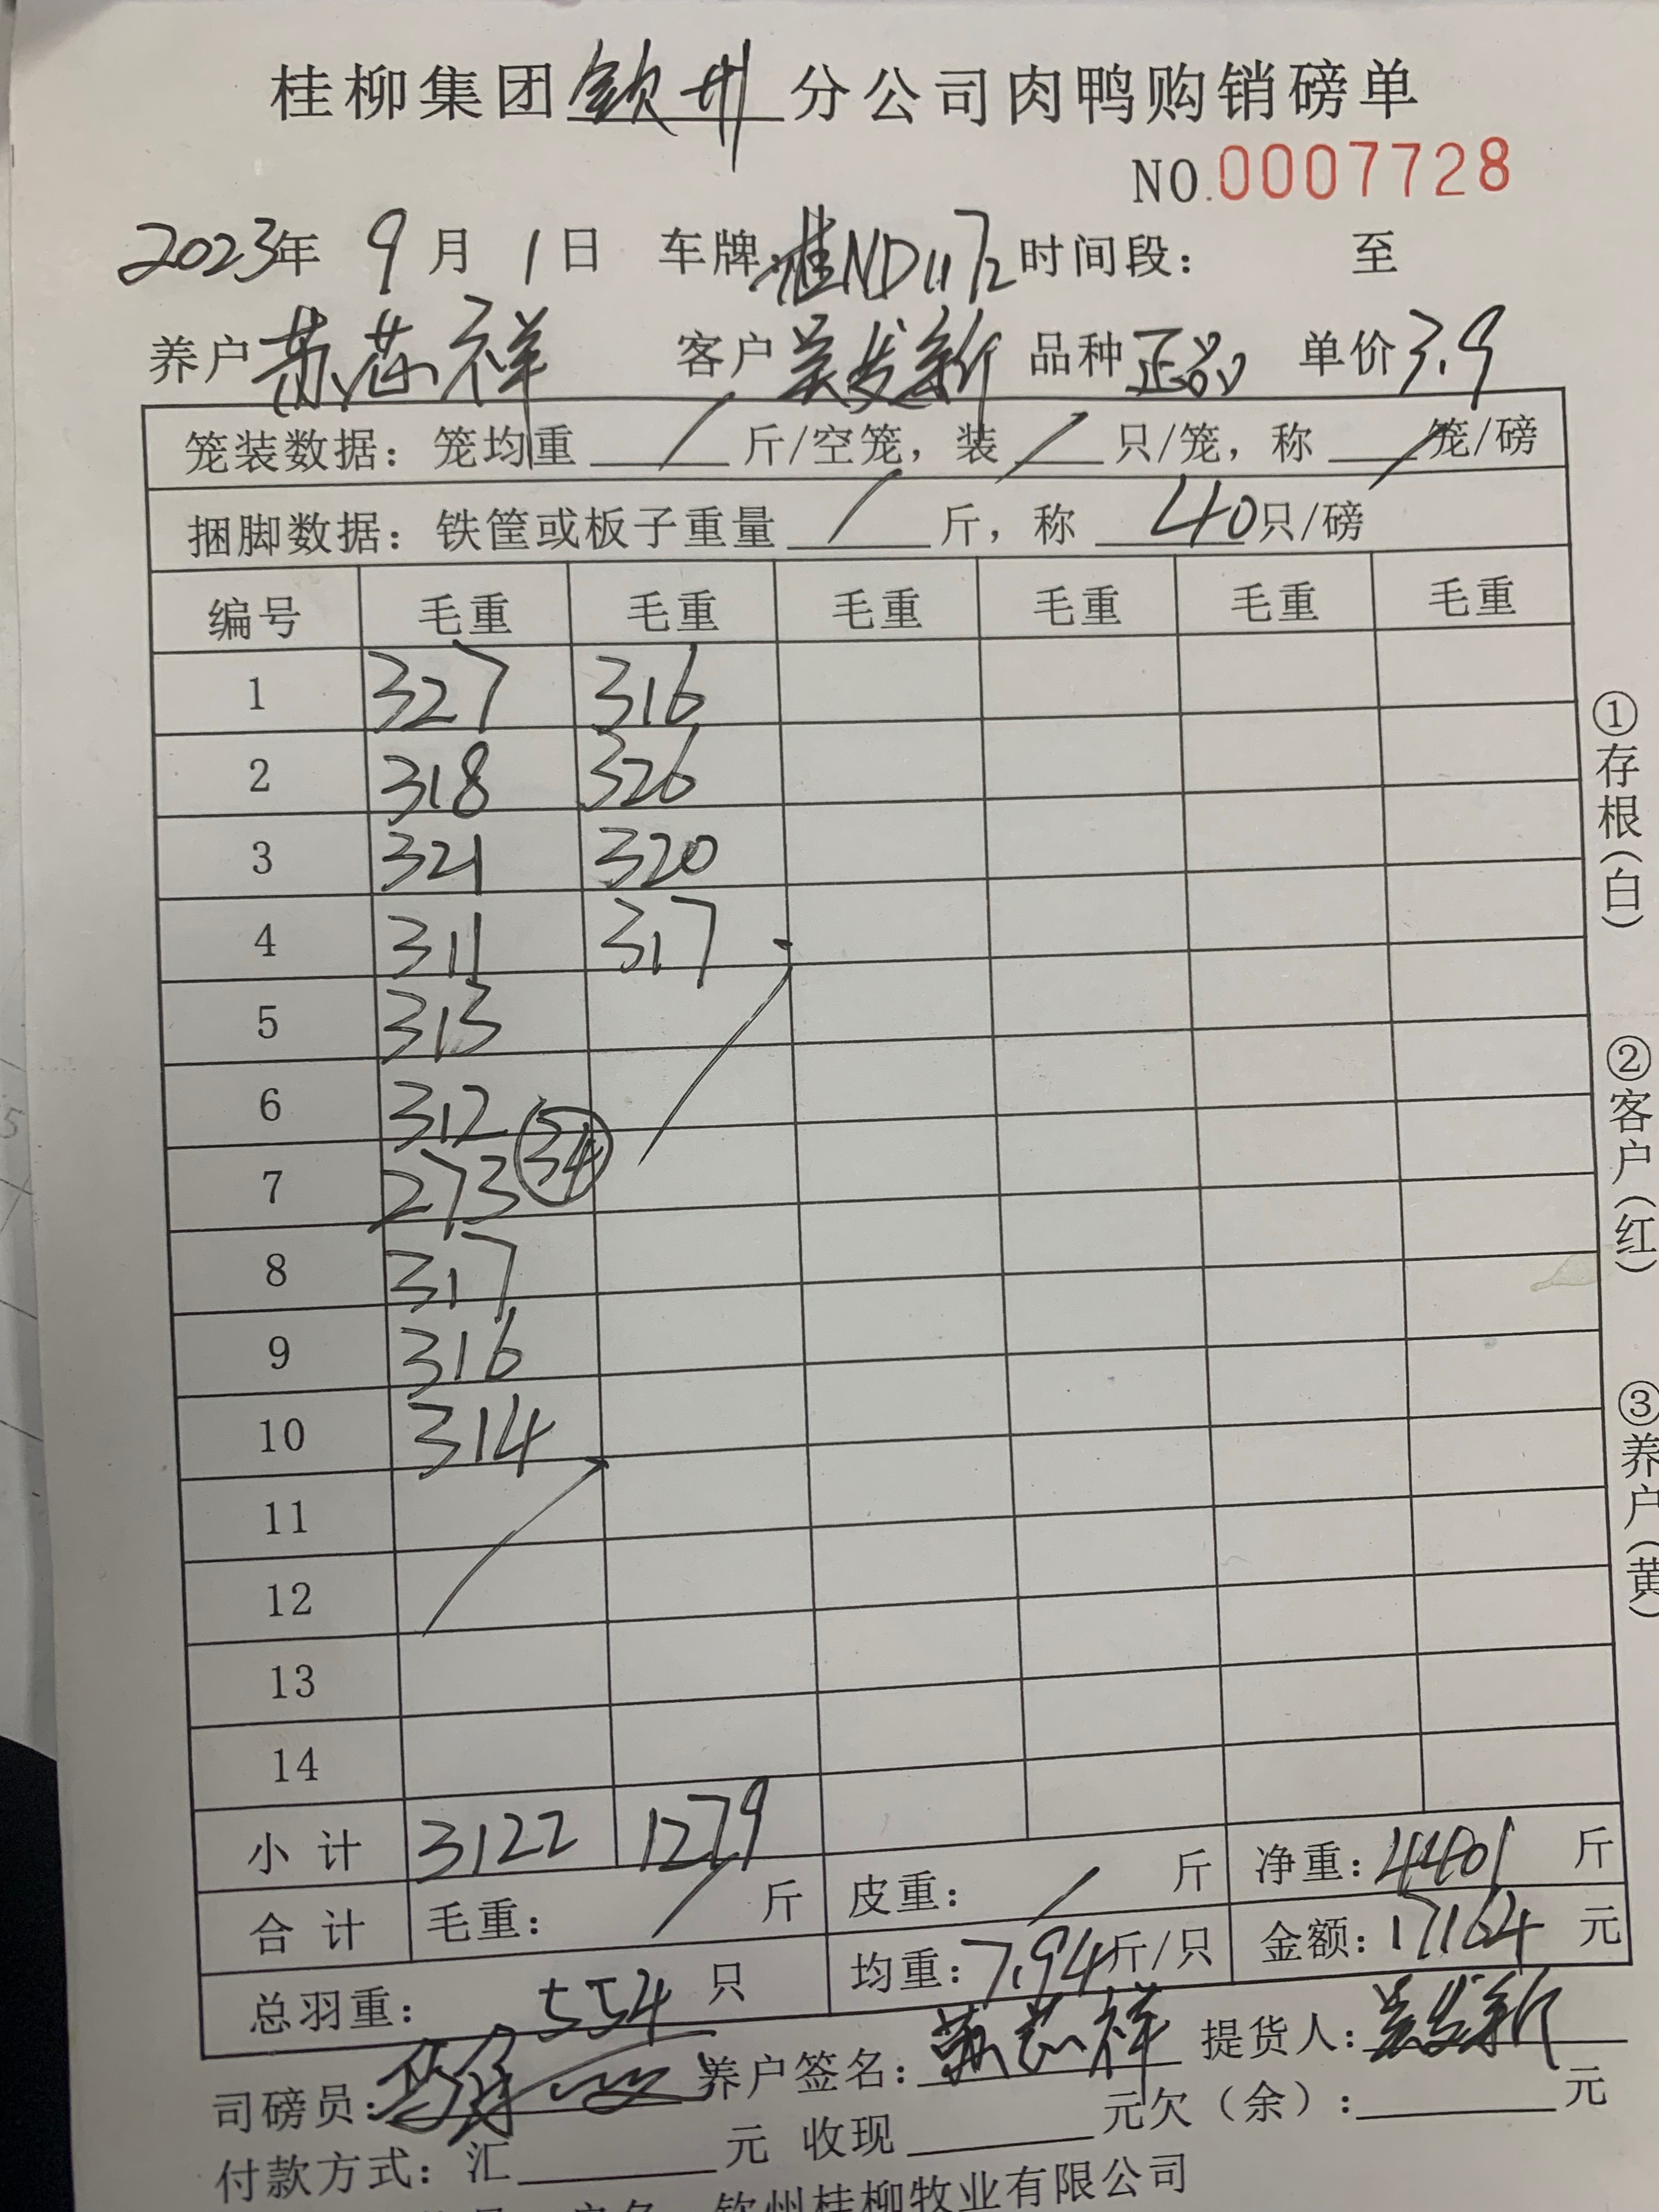 桂柳集团钦州分公司肉鸭购销磅单
NO.0007728
2023年 9月 1日 车牌:桂ND1172 时间段: 至
养户 苏芯祥 客户 吴发新 品种 正品 单价 3.9
笼装数据:笼均重 / 斤/空笼,装 / 只/笼,称 / 笼/磅
捆脚数据:铁筐或板子重量 / 斤,称 40只/磅
编号 毛重 毛重 毛重 毛重 毛重 毛重
1 327 316
2 318 326
3 321 320
4 311 317
5 313
6 312
7 273 34
8 317
9 316
10 314
11
12
13
14
小计 3122 1279
合计 毛重: / 斤 皮重: / 斤 净重:4401 斤
总羽重: 554 只 均重:7.94斤/只 金额:17164 元
司磅员: 养户签名:苏芯祥 提货人:吴发新
付款方式:汇 元 收现 元欠(余): 元
钦州桂柳牧业有限公司
①存根(白)
②客户(红)
③养户(黄)